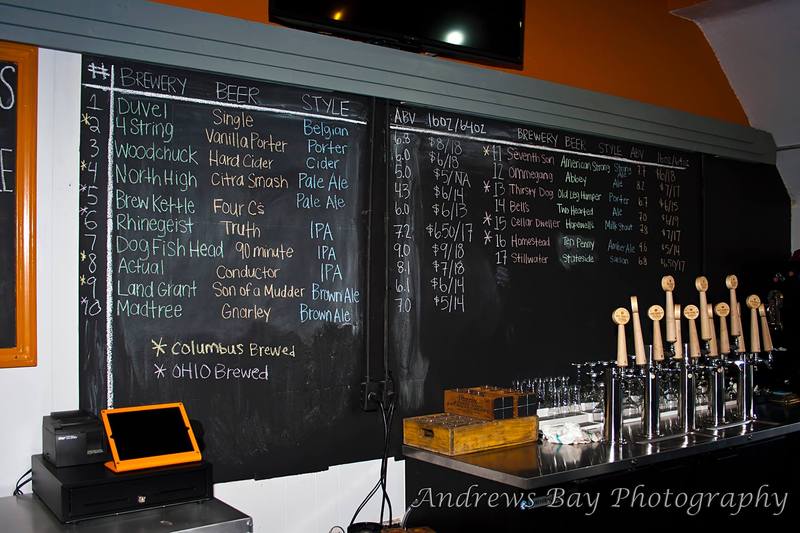 S
E
# BREWERY BEER STYLE
1 Duvel Single Belgian
*2 4 String Vanilla Porter Porter
3 Woodchuck Hard Cider Cider
*4 North High Citra Smash Pale Ale
*5 Brew Kettle Four C's Pale Ale
*6 Rhinegeist Truth IPA
7 Dog Fish Head 90 minute IPA
*8 Actual Conductor IPA
*9 Land Grant Son of a Mudder Brown Ale
*10 Madtree Gnarley Brown Ale
* Columbus Brewed
* OHIO Brewed
ABV 16oz/64oz
6.8 $8/18
6.0 $6/13
5.0 $5/NA
4.3 $6/14
6.0 $6/13
7.2 $6.50/17
9.0 $9/18
8.1 $7/18
6.1 $6/14
7.0 $5/14
BREWERY BEER STYLE ABV 16oz/64oz
*11 Seventh Son American Strong Strong Ale 7.7 $6/18
12 Ommegang Abbey Ale 8.2 $7/17
*13 Thirsty Dog Old Leg Humper Porter 6.7 $6/15
14 Bells Two Hearted Ale 7.0
*15 Cellar Dweller Hopewell's Milk Stout
*16 Homestead Ten Penny Amber Ale $5/14
17 Stillwater Stateside Saison 6.8
Andrews Bay Photography